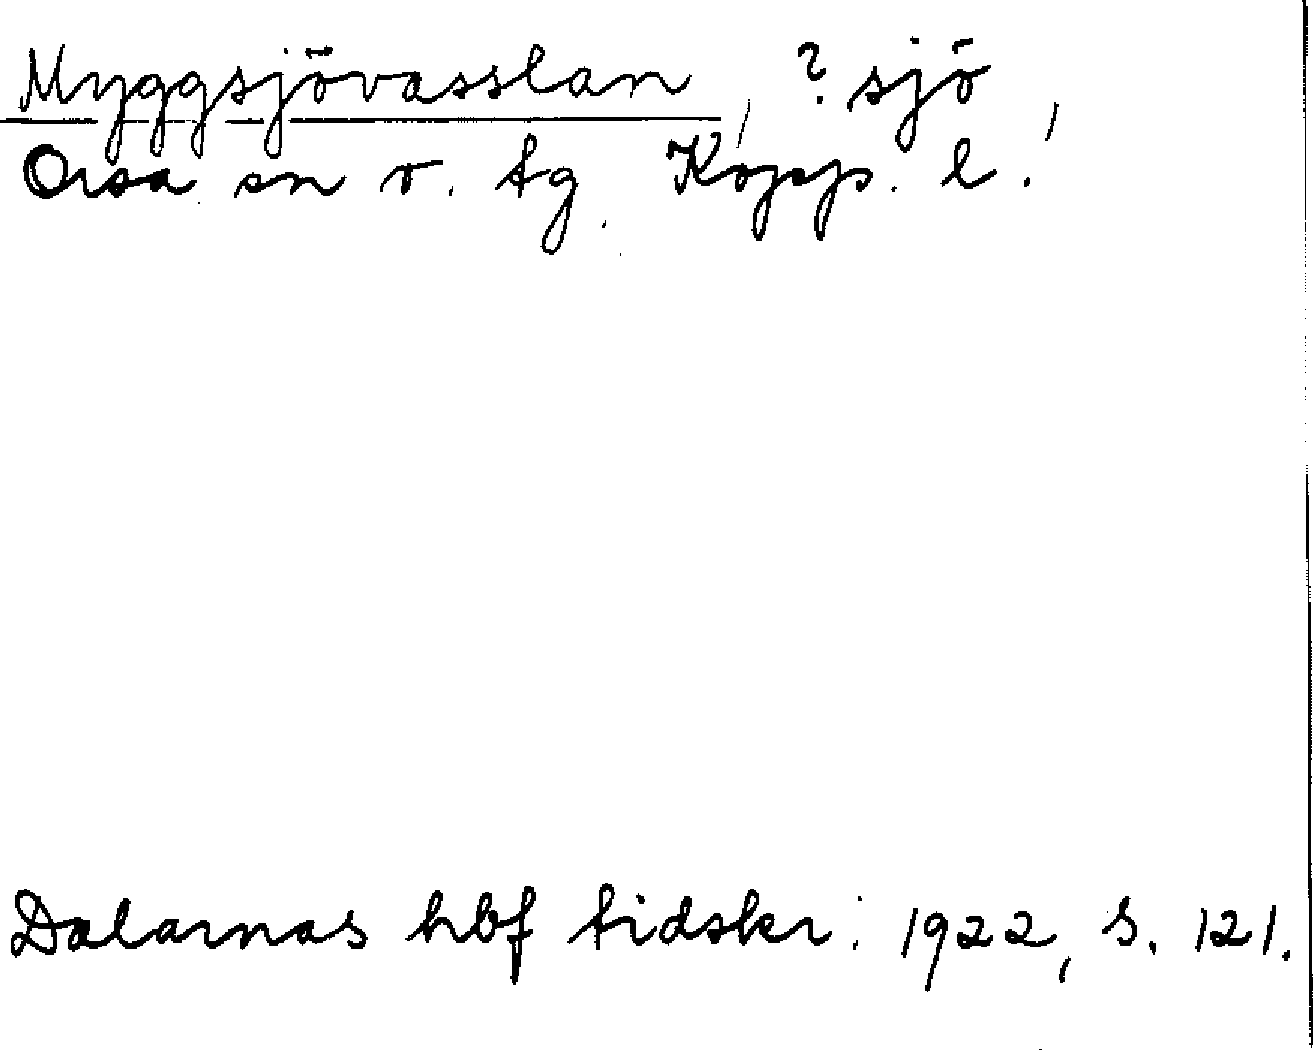 Myggsjövasslan, ? sjö,
Orsa sn o. tg. Kopp. l.
Dalarnas hbf tidskr: 1922, s. 121.